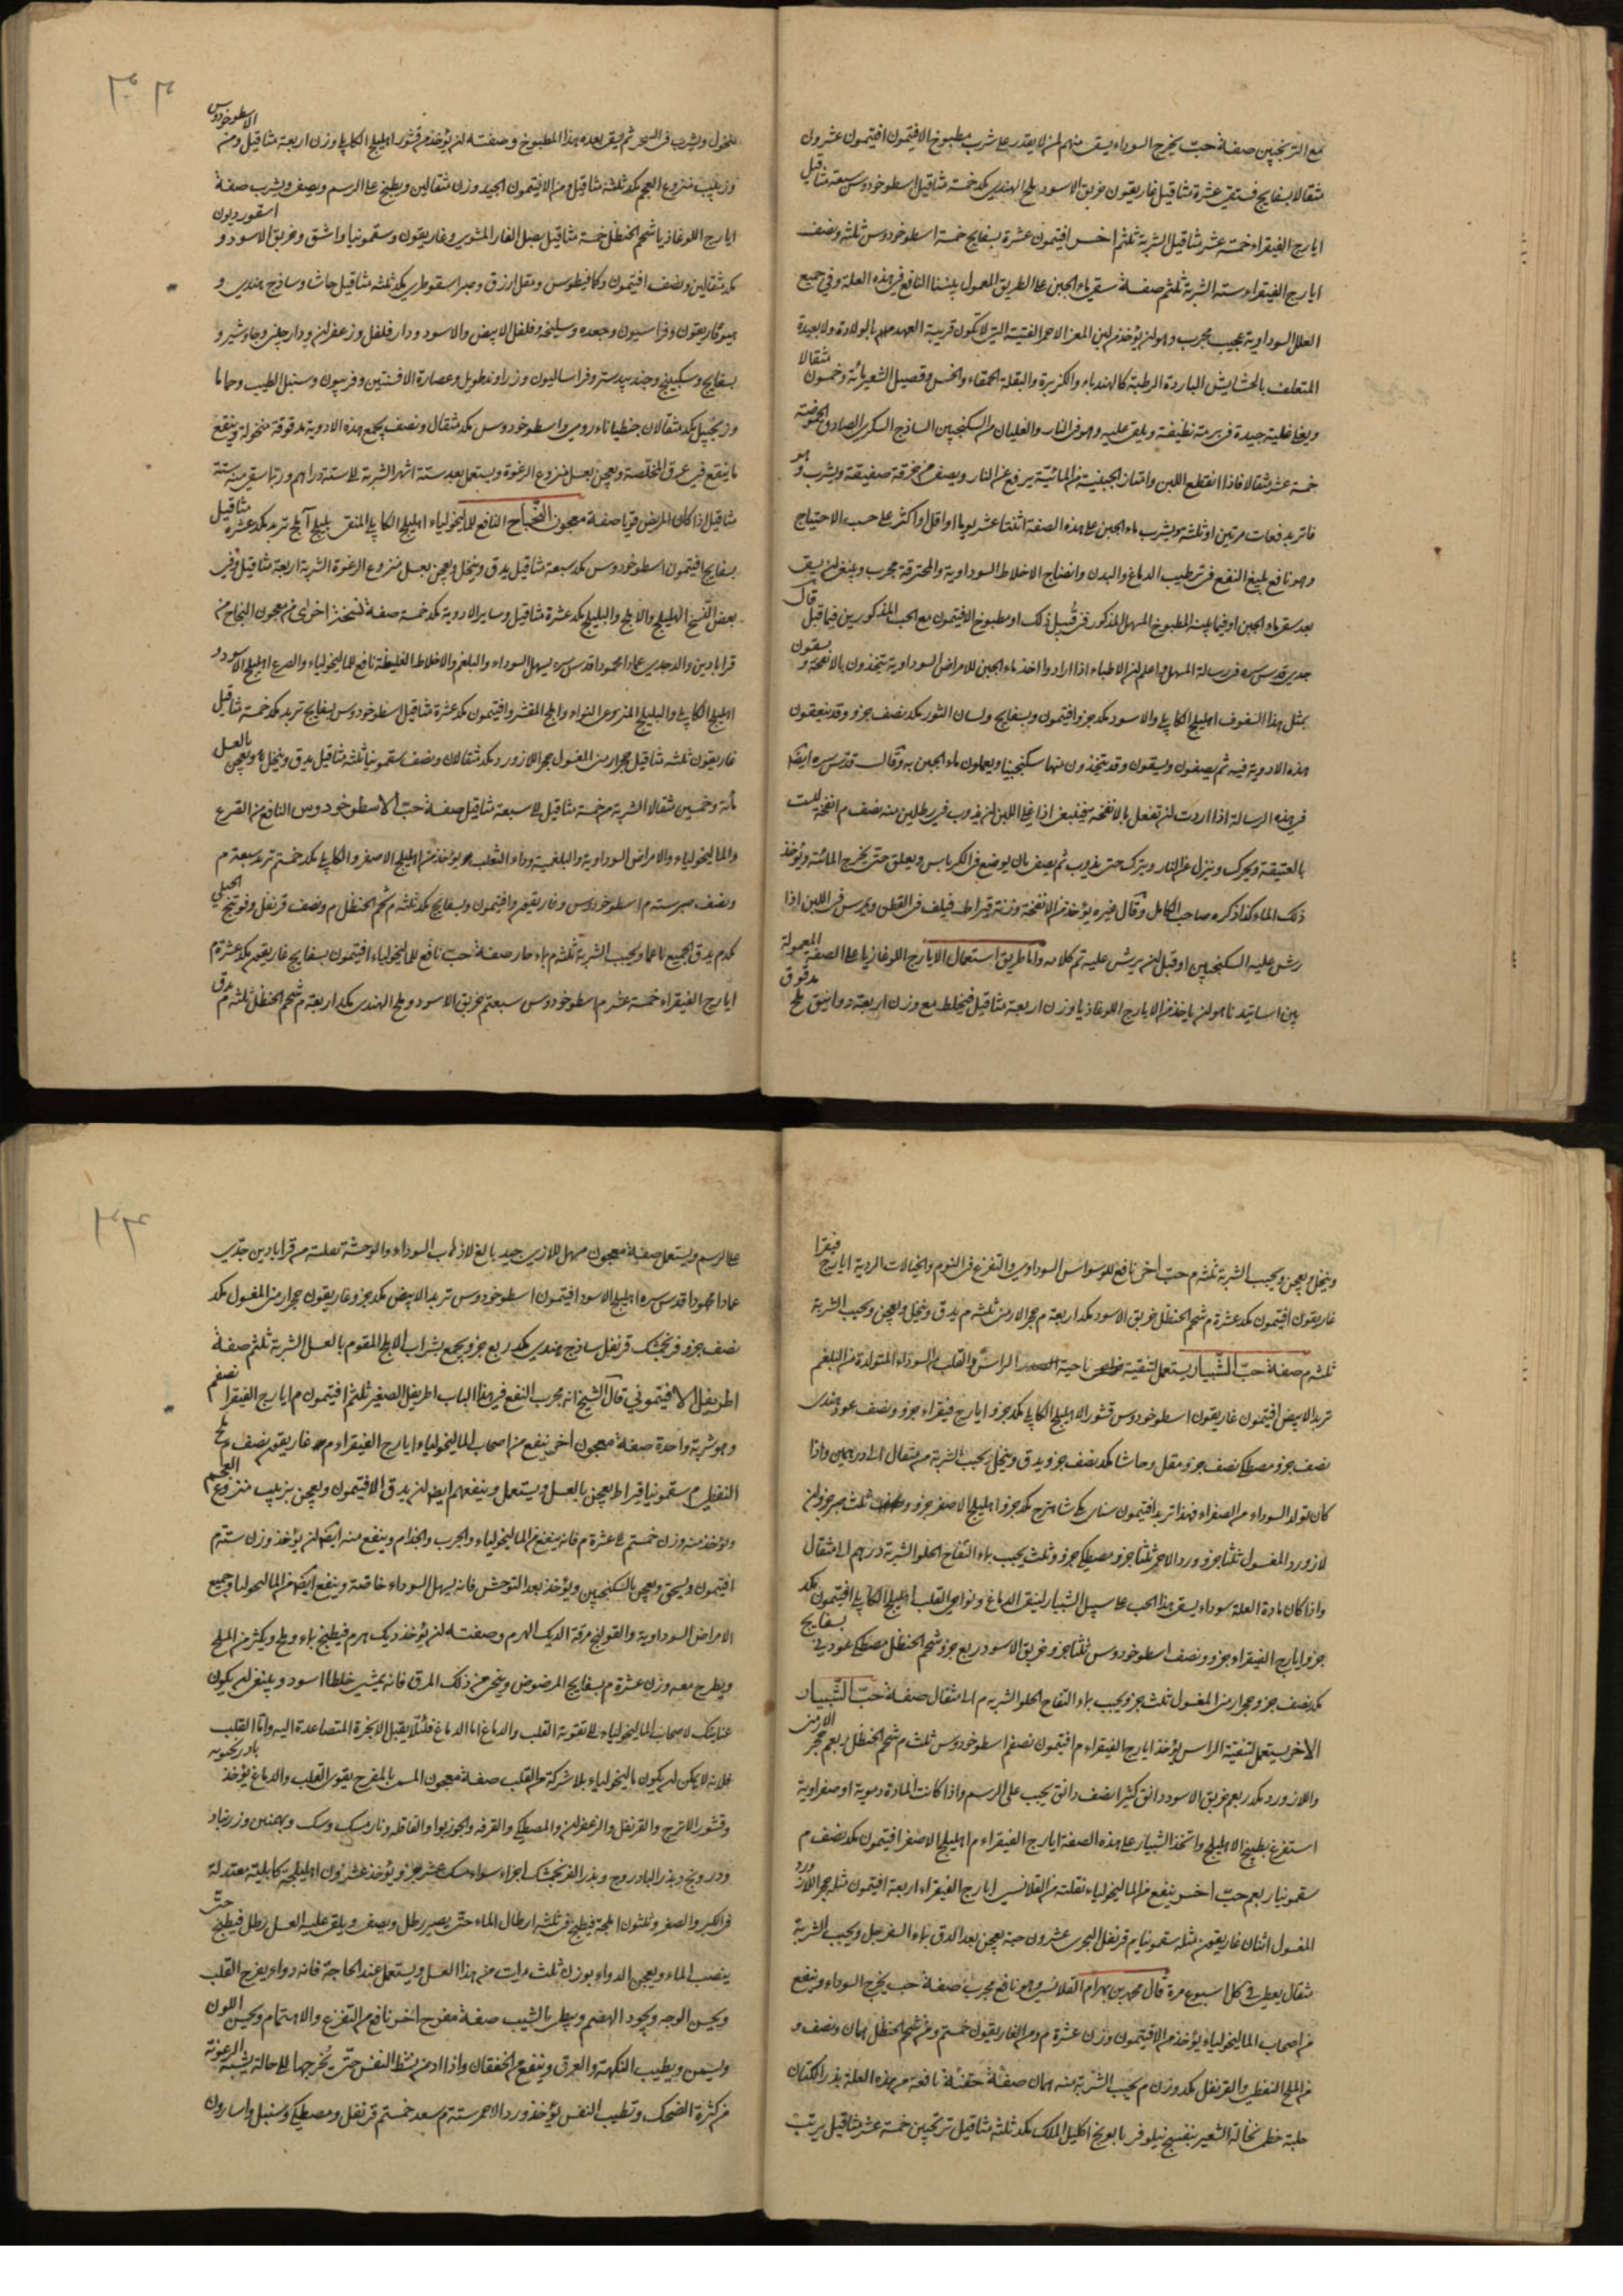 مع الترنجبين صفة حب يخرج السوداء يسقى منهم لمن لا يقدر على شرب مطبوخ الافتيمون افتيمون عشرون
مثقالا بسفايج فستقى عشرة مثاقيل غاريقون خربق الاسود ملح الهندى مكد خمسة مثاقيل اسطوخودوس سبعة مثاقيل
ايارج الفيقراء خمسة عشر مثاقيل الشربة ثلثم اخر افتيمون عشرة بسفايج خمسة اسطوخودوس ثلثة ونصف
ايارج الفيقراء ستة الشربة ثلثم صفة سقى ماء الجبن على الطريق المعمول بيننا النافع فى هذه العلة وفى جميع
العلل السوداوية عجيب مجرب وهو ان يؤخذ من لبن المعز الاحمر الفتية التى لا تكون قريبة العهد بالولادة ولا بعيدة
المتعلف بالحشايش الباردة الرطبة كالهندباء والكزبرة والبقلة الحمقاء والخس وقصيل الشعير مائة وخمسون مثقالا
ويغلى غلية جيدة فى برمة نظيفة ويلقى عليه وهو فى النار والغليان من السكنجبين الساذج السكرى الصادق الحموضة
خمسة عشر مثقالا فاذا انقطع اللبن وامتاز الجبنية من المائية يرفع عن النار ويصفى من خرقة صفيقة ويشرب وهو
فاتر بدفعات مرتين او ثلثة ويشرب ماء الجبن على هذه الصفة اثنتا عشر يوما او اقل او اكثر على حسب الاحتياج
وهو نافع بليغ النفع فى ترطيب الدماغ والبدن وانضاج الاخلاط السوداوية والمحترقة مجرب وينبغى ان يسقى
بعد سقى ماء الجبن او فيما بينه المطبوخ المسهل المذكور فى قبيل ذلك او مطبوخ الافتيمون مع الحب المذكورين فيما قبل قال
جدى قدس سره فى رسالة المسهل واعلم ان الاطباء اذا ارادوا اخذ ماء الجبن للامراض السوداوية يتخذون بالانفحة ويسقون
بمثل هذا السفوف اهليلج الكابلى والاسود مكد جزو افتيمون وبسفايج ولسان الثور مكد نصف جزو وقد ينقعون
هذه الادوية فيه ثم يصفون ويسقون وقد يتخذون منها سكنجبينا ويعملون ماء الجبن به وقال قدس سره ايضا
فى هذه الرسالة اذا اردت ان تفعل بالانفحة فينبغى اذا غلى اللبن ان يذوب فى رطلين منه نصف م انفحة ليست
بالعتيقة ويحرك وينزل عن النار ويترك حتى يذوب ثم يصفى بان يوضع فى الكرباس ويعلق حتى يخرج المائية ويؤخذ
ذلك الماء كذا ذكره صاحب الكامل وقال غيره يؤخذ من الانفحة وزنة قيراط فيلف فى القطن ويمرس فى اللبن اذا
رش عليه السكنجبين او قبل ان يرش عليه تم كلامه واما طريق استعمال الايارج اللوغاذيا على الصفة المعمولة
بين اساتيدنا هو ان ياخذ من الايارج اللوغاذيا وزن اربعة مثاقيل فيخلط مع وزن اربعة دوانيق ملح مدقوق
منخول ويشرب فى السحر ثم يسقى بعده هذا المطبوخ وصفته ان يؤخذ من قشور اهليلج الكابلى وزن اربعة مثاقيل ومن الاسطوخودوس
وزبيب منزوع العجم مكد ثلثة مثاقيل ومن الافتيمون الجيد وزن مثقالين ويطبخ على الرسم ويصفى ويشرب صفة
ايارج اللوغاذيا شحم الحنظل خمسة مثاقيل بصل الفار المشوى وغاريقون وسقمونيا واشق وخربق الاسود و اسقورديون
مكد مثقالين ونصف افتيمون وكمافيطوس ومقل ازرق وصبر اسقوطرى مكد ثلثة مثاقيل حاشا وساذج هندى و
هيوفاريقون وفراسيون وجعده وسليخه وفلفل الابيض والاسود ودار فلفل وزعفران ودارچينى وجاوشير و
بسفايج وسكبينج وجندبيدستر وفطراساليون وزراوند طويل وعصارة الافسنتين وفربيون وسنبل الطيب وحماما
وزنجبيل مكد مثقالان جنطيانا رومى واسطوخودوس مكد مثقال ونصف يجمع هذه الادوية مدقوقة منخولة وينقع
ما ينقع فى عرق المخلصة ويعجن بعسل منزوع الرغوة ويستعمل بعد ستة اشهر الشربة الى ستة دراهم وربما سقى منه ستة
مثاقيل اذا كان المريض قويا صفة معجون النجاح النافع للماليخولياء اهليلج الكابلى المنقى بليلج آملج تربد مكد عشرة مثاقيل
بسفايج افتيمون اسطوخودوس مكد سبعة مثاقيل يدق وينخل ويعجن بعسل منزوع الرغوة الشربة اربعة مثاقيل وفى
بعض النسخ الهليلج والاملج والبليلج مكد عشرة مثاقيل وساير الادوية مكد خمسة صفة نسخة اخرى من معجون النجاح من
قرابادين والد جدى عماد محمود قدس سره يسهل السوداء والبلغم والاخلاط الغليظة نافع للماليخولياء والصرع اهليلج الاسود و
اهليلج الكابلى والبليلج المنزوع النواء واملج المقشر وافتيمون مكد عشرة مثاقيل اسطوخودوس بسفايج تربد مكد خمسة مثاقيل
غاريقون ثلثه مثاقيل حجر ارمنى المغسول حجر اللازورد مكد مثقالان ونصف سقمونيا ثلثه مثاقيل يدق وينخل ويعجن بالعسل
مأئة وخمسين مثقالا الشربة من خمسة مثاقيل الى سبعة مثاقيل صفة حب الاسطوخودوس النافع من الصرع
والماليخولياء والامراض السوداوية والبلغمية وداء الثعلب يؤخذ من اهليلج الاصفر والكابلى مكد خمستم تربد سبعة م
ونصف صبر ستة م اسطوخودوس وغاريقون وافتيمون وبسفايج مكد ثلثه م شحم الحنظل م ونصف قرنفل وفوتنج الجبلى
مكدم يدق الجميع ناعما ويحبب الشربة ثلثه م بماء حار صفة حب نافع للماليخولياء افتيمون بسفايج غاريقون مكد عشرة م
ايارج الفيقراء خمسة عشر م اسطوخودوس سبعتم خربق الاسود وملح الهندى مكد اربعة م شحم الحنظل ثلثه م يدق
وينخل ويعجن ويحبب الشربة ثلثه م حب اخر نافع للوسواس السوداوى والتفزع فى النوم والخيالات الردية ايارج فيقرا
غاريقون افتيمون مكد عشرة م شحم الحنظل خربق الاسود مكد اربعة م حجر الارمنى ثلثه م يدق وينخل ويعجن ويحبب الشربة
ثلثه م صفة حب الشبيار يستعمل لتنقية ناحية الراس والقلب من السوداء المتولدة من البلغم
تربد الابيض افتيمون غاريقون اسطوخودوس قشور الاهليلج الكابلى مكد جزو ايارج فيقراء جزو ونصف عود هندى
نصف جزو مصطكى نصف جزو مقل وحاشا مكد نصف جزو يدق وينخل ويحبب الشربة من مثقال الى درهمين واذا
كان تولد السوداء من الصفراء فهذا تربد افتيمون سناى مكى شاهترج مكد جزو اهليلج الاصفر جزو ثلث صبر جزو ان
لازورد المغسول ثلثا جزو ورد الاحمر ثلثا جزو مصطكى جزو وثلث يحبب بماء التفاح الحلو الشربة درهم الى مثقال
واذا كان مادة العلة سوداء يسقى هذا الحب على سبيل الشبيار لينقى الدماغ ونواحى القلب اهليلج الكابلى افتيمون مكد
جزو ايارج الفيقراء جزو ونصف اسطوخودوس ثلثا جزو خربق الاسود ربع جزو شحم الحنظل مصطكى عود نى بسفايج
مكد نصف جزو حجر ارمنى المغسول ثلث جزو يحبب بماء التفاح الحلو الشربه م الى مثقال صفة حب الشبيار
الاخر يستعمل لتنقية الراس يؤخذ ايارج الفيقراء م افتيمون نصفم اسطوخودوس ثلث م شحم الحنظل ربعم حجر الارمنى
واللازورد مكد ربعم خربق الاسود دانق كثيرا نصف دانق يحبب على الرسم واذا كانت المادة دموية او صفراوية
استفرغ بطبيخ الاهليلج واتخذ الشبيار على هذه الصفة ايارج الفيقراء م اهليلج الاصفر افتيمون مكد نصف م
سقمونيا ربعم حب اخر ينفع من الماليخولياء نقلته من القلانسى ايارج الفيقراء اربعة افتيمون مثله حجر اللازورد
المغسول اثنان غاريقون مثله سقمونيا م قرنفل البحرى عشرون حبة يعجن بعد الدق بماء السفرجل ويحبب الشربة
مثقال يعطى فى كل اسبوع مرة قال محمد بن بهرام القلانسى وهو نافع مجرب صفة حب يخرج السوداء وينفع
من اصحاب الماليخولياء يؤخذ من الافتيمون وزن عشرة م ومن الغاريقون خمستم ومن شحم الحنظل مان ونصف و
من الملح النفطى والقرنفل مكد وزن م يحبب الشربة منه مان صفة حقنة نافعة من هذه العلة بذر الكتان
حلبة خطمى نخالة الشعير بنفسج نيلوفر بابونج اكليل الملك مكد ثلثه مثاقيل ترنجبين خمسة عشر مثاقيل يرتب
على الرسم ويستعمل صفة معجون مسهل للازى جيد بالغ لاذهاب السوداء والوحشة نقلته من قرابادين جدى
عماد محمود قدس سره اهليلج الاسود افتيمون اسطوخودوس تربد الابيض مكد جزو غاريقون حجر ارمنى المغسول مكد
نصف جزو فرنجمشك قرنفل ساذج هندى مكد ربع جزو يجمع بشراب الاملج المقوم بالعسل الشربة ثلثم صفة
اطريفل الافتيمونى قال الشيخ انه مجرب النفع فى هذا الباب اطريفل الصغير ثلثم افتيمون م ايارج الفيقرا نصفم
وهو شربة واحدة صفة معجون اخر ينفع من اصحاب الماليخولياء ايارج الفيقراء م غاريقون نصف م ملح
النفطى م سقمونيا قيراط يعجن بالعسل ويستعمل وينفعهم ايضا ان يدق الافتيمون ويعجن بزبيب منزوع العجم
ويؤخذ منه وزن خمستم الى عشرة م فانه ينفع من الماليخولياء والجرب والجذام وينفع منه ايضا ان يؤخذ وزن ستة م
افتيمون ويسحق ويعجن بالسكنجبين ويؤخذ بعد التوحش فانه يسهل السوداء خاصة وينفع ايضا من الماليخولياء وجميع
الامراض السوداوية والقولنج مرقة الديك الهرم وصفته ان يؤخذ ديك هرم فيطبخ بماء وملح ويكثر من الملح
ويطرح معه وزن عشرة م بسفايج المرضوض ويتحسى من ذلك المرق فانه يمشى خلطا اسود وينبغى ان يكون
عنايتك لاصحاب الماليخولياء الى تقوية القلب والدماغ اما الدماغ فلئلا يقبل الابخرة المتصاعدة اليه واما القلب
فلانه لا يمكن ان يكون ماليخولياء بلا شركة من القلب صفة معجون المسمى بالمفرح يقوى القلب والدماغ يؤخذ بادرنجبويه
وقشور الاترج والقرنفل والزعفران والمصطكى والقرفه والجوزبوا والقاقله ونارمسك وسك وبهمنين وزرنباد
ودرونج وبذر البادروج وبذر الفرنجمشك اجزاء سواء مسك عشر جزو يؤخذ عشرون اهليلجة كابلية معتدلة
فى الكبر والصغر وثلثون املجة فيطبخ فى ثلثه ارطال الماء حتى يصير رطل ويصفى ويلقى عليه العسل رطل فيطبخ حتى
ينضب الماء ويعجن الدواء بوزن ثلث مرات من هذا العسل ويستعمل عند الحاجة فانه دواء يفرح القلب
ويحسن الوجه ويجود الهضم ويبطئ بالشيب صفة مفرح اخر نافع من التفزع والاهتمام ويحسن اللون
ويسمن ويطيب النكهة والعرق وينفع من الخفقان واذا ادمن بسط النفس حتى يخرجها الى حالة يشبه الرعونة
من كثرة الضحك وتطيب النفس يؤخذ ورد الاحمر ستة م سعد خمستم قرنفل ومصطكى وسنبل واسارون